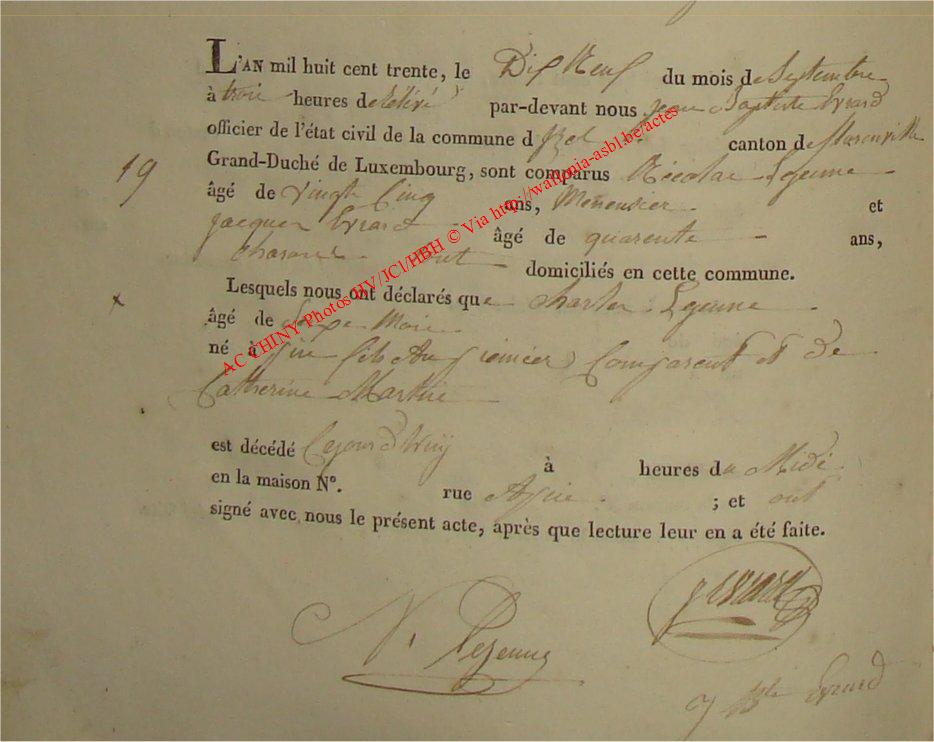 L'AN mil huit cent trente, le Dix Neuf du mois de Septembre
à trois heures de relevé par-devant nous Jean Baptiste Evrard
officier de l'état civil de la commune d Izel canton de florenville
19
Grand-Duché de Luxembourg, sont comparus Nicolas Lejeune
âgé de vingt Cinq ans, Menuisier et
jacques Evrard âgé de quarente ans,
domiciliés en cette commune.
Lesquels nous ont déclarés que charles Lejeune
x
âgé de mois
né à fils du premier Comparent et de
Catherine Martin
est décédé Cejourd'huy à heures du Midi
en la maison N°. rue ; et ont
signé avec nous le présent acte, après que lecture leur en a été faite.
N. Lejeune
J Bte Evrard
AC CHINY Photos HV/JCl/HBH © Via http://wallonia-asbl.be/actes